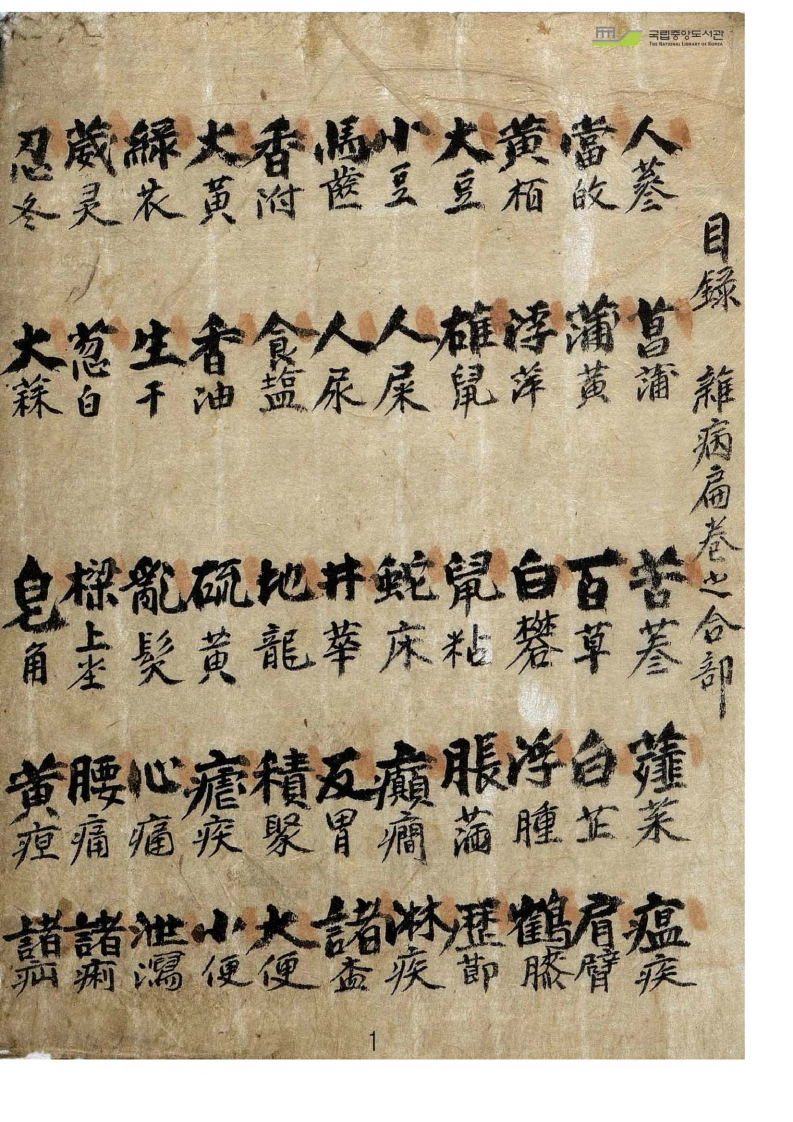 국립중앙도서관
THE NATIONAL LIBRARY OF KOREA
目錄 雜病扁卷之合部
人蔘 菖蒲 苦蔘 薤菜 瘟疾
當皈 蒲黃 百草 白芷 肩臂
黃栢 浮萍 白礬 浮腫 鶴膝
大豆 雄鼠 鼠粘 脹滿 歷節
小豆 人屎 蛇床 癲癎 淋疾
馬齒 人尿 井華 反胃 諸
香附 食塩 地龍 積聚 大便
大黃 香油 硫黃 瘧疾 小便
綠衣 生干 亂髮 心痛 泄瀉
葳灵 葱白 樑上尘 腰痛 諸痢
忍冬 大蒜 皂角 黃疸 諸疝
1